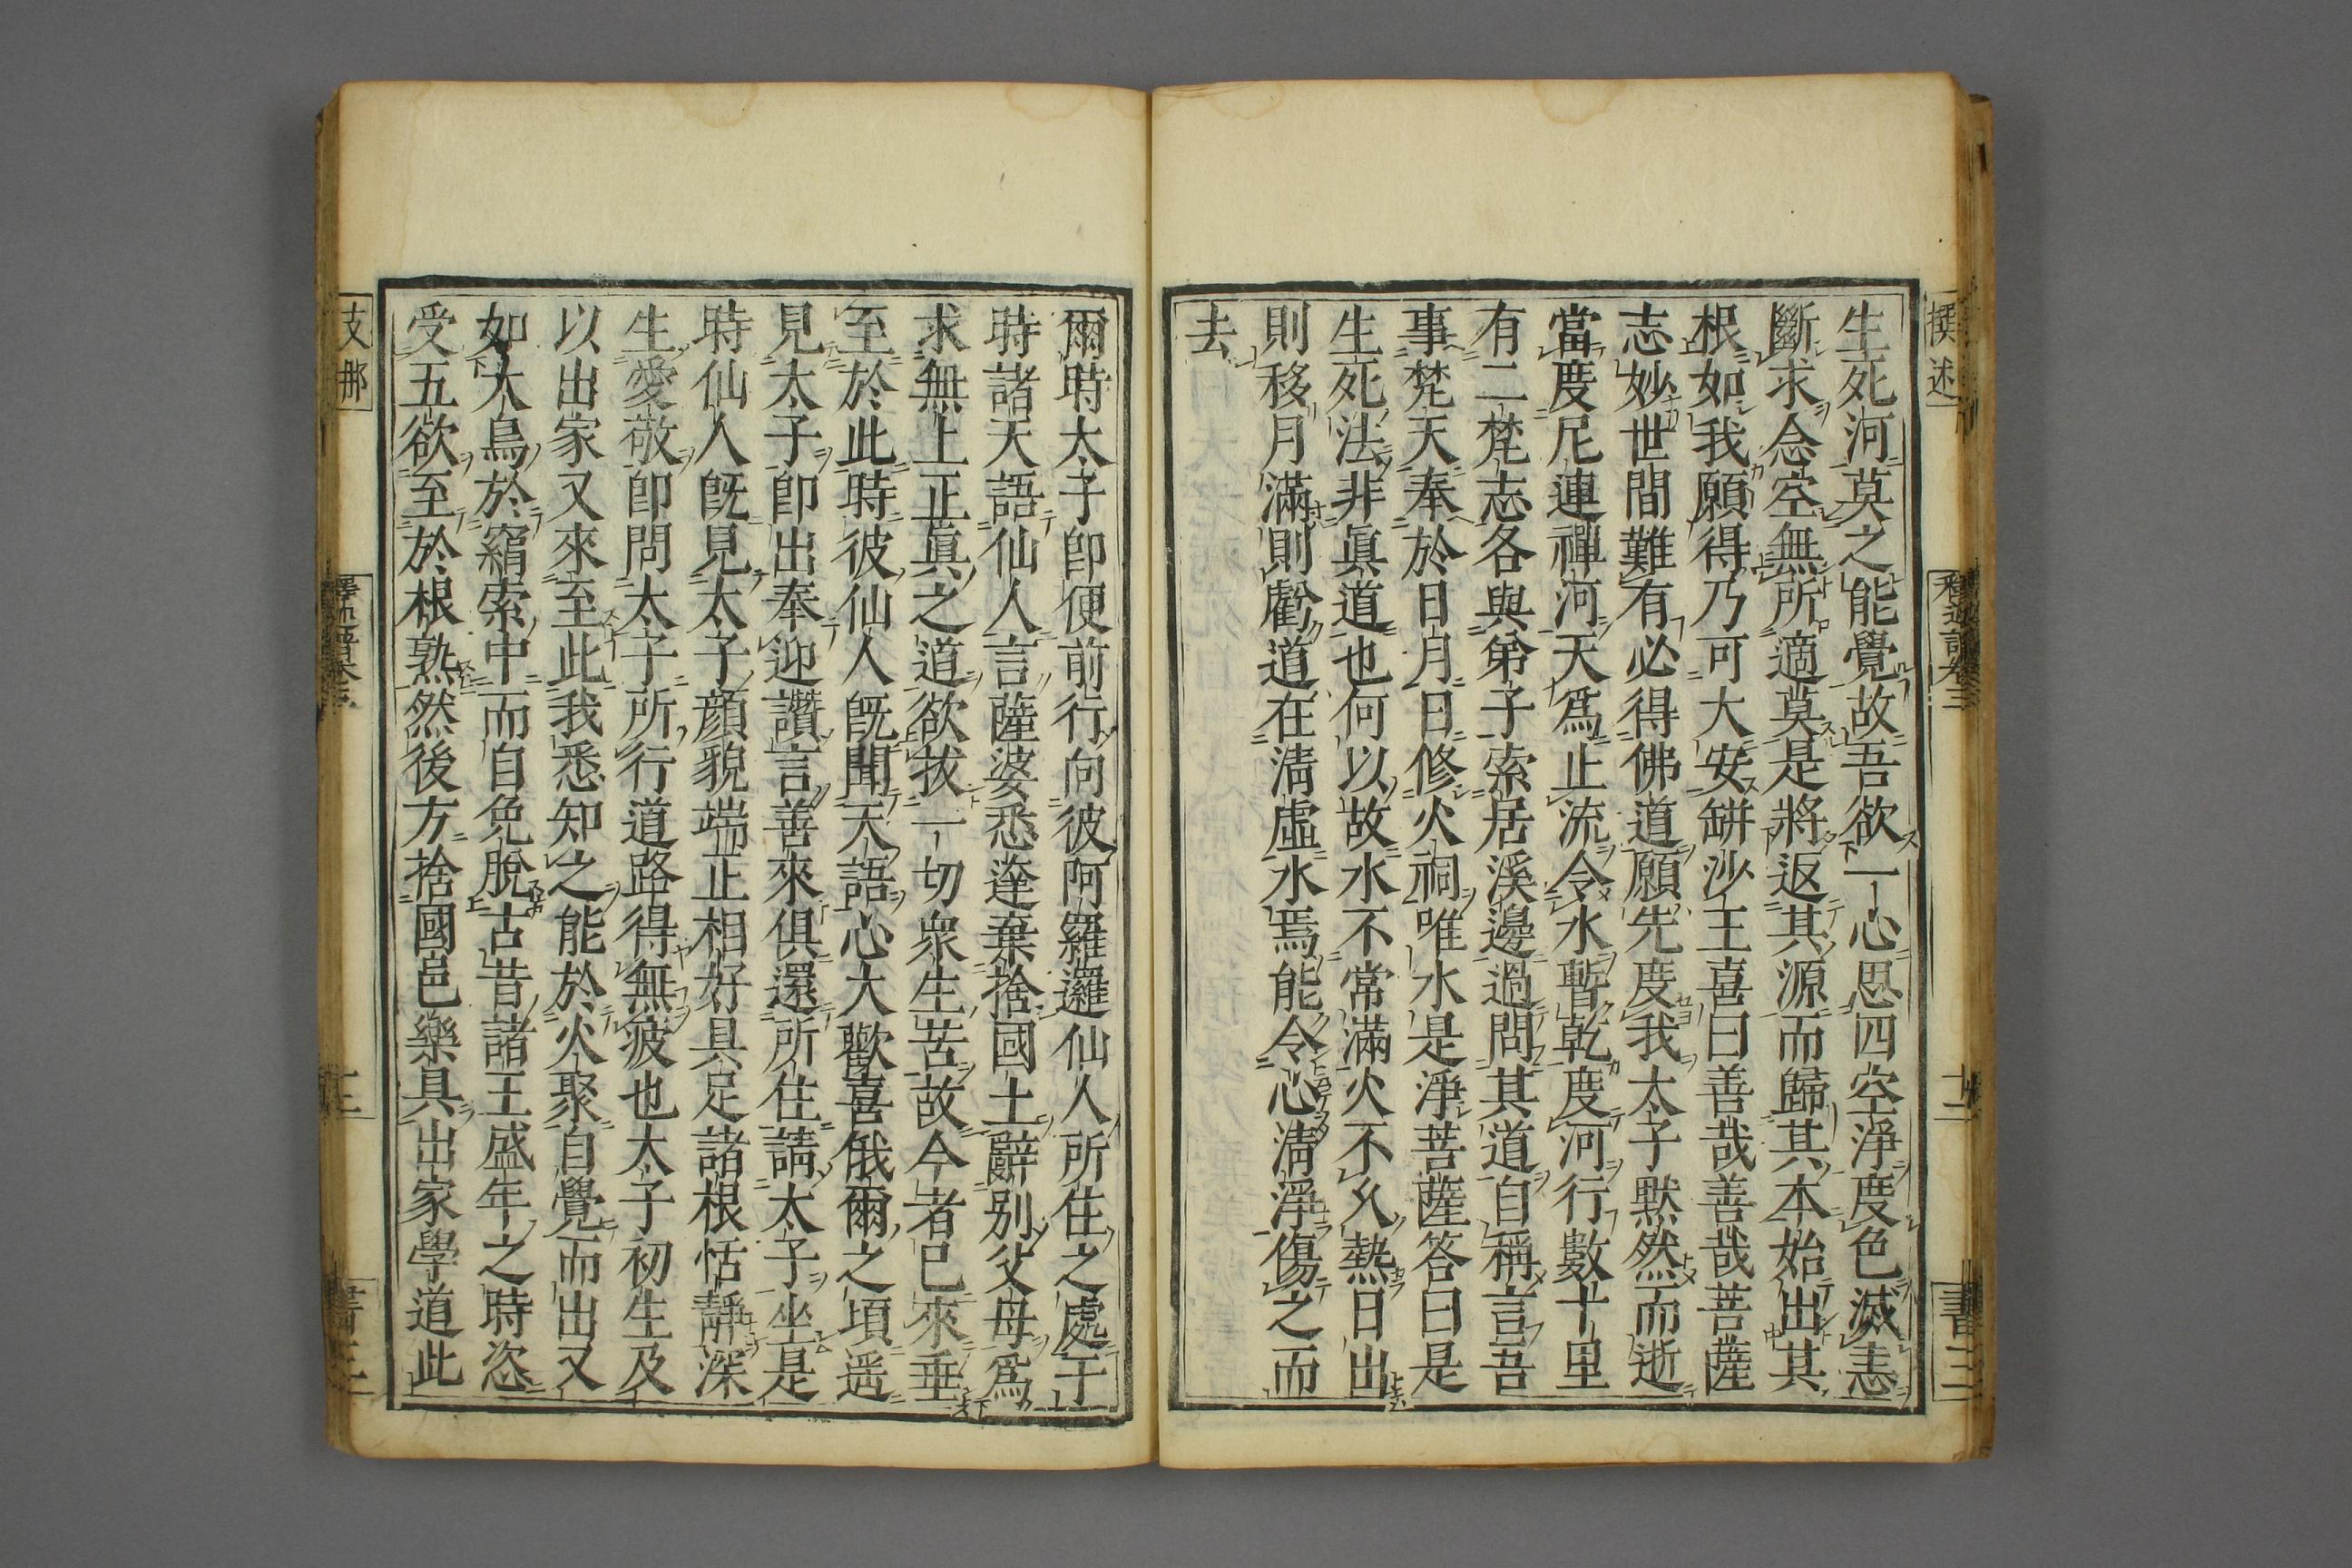 撰述
釋迦譜卷三
十二
書三
生死河莫之能覺故吾欲一心思四空淨度色滅恚
斷求念空無所適莫是將返其源而歸其本始出其
根如我願得乃可大安缾沙王喜曰善哉善哉菩薩
志妙世間難有必得佛道願先度我太子默然而逝
當度尼連禪河天爲止流令水暫乾度河行數十里
有二梵志各與弟子索居溪邊過問其道自稱言吾
事梵天奉於日月日修火祠唯水是淨菩薩答曰是
生死法非眞道也何以故水不常滿火不久熱日出
則移月滿則虧道在淸虛水焉能令心淸淨傷之而
去
爾時太子卽便前行向彼阿羅邏仙人所住之處于
時諸天語仙人言薩婆悉達棄捨國土辭別父母爲
求無上正眞之道欲拔一切衆生苦故今者已來垂
至於此時彼仙人旣聞天語心大歡喜俄爾之頃遥
見太子卽出奉迎讚言善來俱還所住請太子坐是
時仙人旣見太子顏貌端正相好具足諸根恬靜深
生愛敬卽問太子所行道路得無疲也太子初生及
以出家又來至此我悉知之能於火聚自覺而出又
如大鳥於羂索中而自免脫古昔諸王盛年之時恣
受五欲至於根熟然後方捨國邑樂具出家學道此
支那